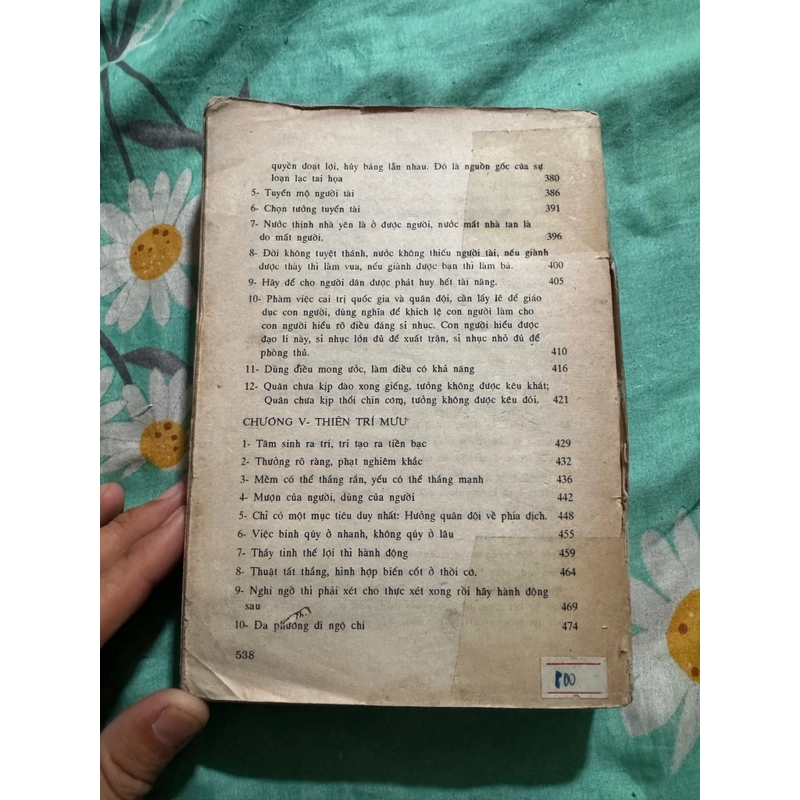 quyền đoạt lợi, hủy báng lẫn nhau. Đó là nguồn gốc của sự
loạn lạc tai họa 380
5- Tuyển mộ người tài 386
6- Chọn tướng tuyển tài 391
7- Nước thịnh nhà yên là ở được người, nước mất nhà tan là
do mất người. 396
8- Đời không tuyệt thánh, nước không thiếu người tài, nếu giành
được thày thì làm vua, nếu giành được bạn thì làm bá. 400
9- Hãy để cho người dân được phát huy hết tài năng. 405
10- Phàm việc cai trị quốc gia và quân đội, cần lấy lễ để giáo
dục con người, dùng nghĩa để khích lệ con người làm cho
con người hiểu rõ điều đáng sỉ nhục. Con người hiểu được
đạo lí này, sỉ nhục lớn đủ để xuất trận, sỉ nhục nhỏ đủ để
phòng thủ. 410
11- Dùng điều mong ước, làm điều có khả năng 416
12- Quân chưa kịp đào xong giếng, tướng không được kêu khát;
Quân chưa kịp thổi chín cơm, tướng không được kêu đói. 421
CHƯƠNG V- THIÊN TRÍ MƯU
1- Tâm sinh ra trí, trí tạo ra tiền bạc 429
2- Thưởng rõ ràng, phạt nghiêm khắc 432
3- Mềm có thể thắng rắn, yếu có thể thắng mạnh 436
4- Mượn của người, dùng của người 442
5- Chỉ có một mục tiêu duy nhất: Hướng quân đội về phía địch. 448
6- Việc binh qúy ở nhanh, không qúy ở lâu 455
7- Thấy tình thế lợi thì hành động 459
8- Thuật tất thắng, hình hợp biến cốt ở thời cơ. 464
9- Nghi ngờ thì phải xét cho thực xét xong rồi hãy hành động
sau 469
Th
10- Đa phương dĩ ngộ chi 474
538
100